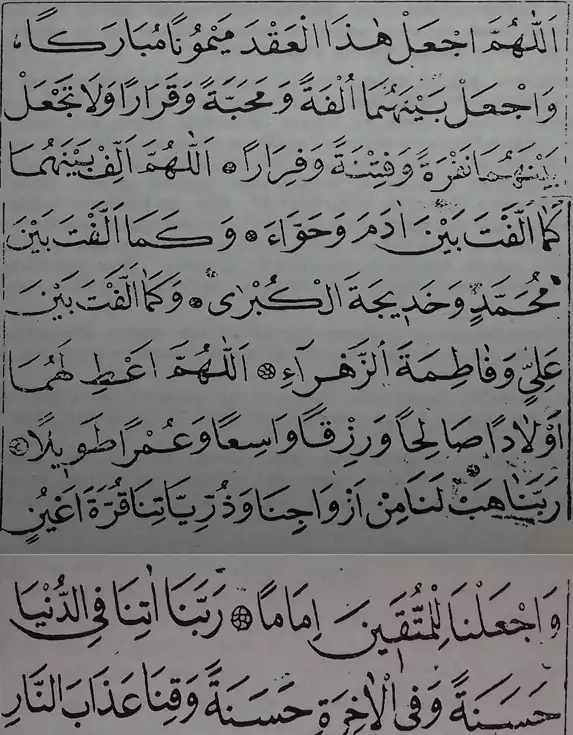 اَللّٰهُمَّ اجْعَلْ هٰذَا الْعَقْدَ مَيْمُونًا مُبَارَكًا،
وَاجْعَلْ بَيْنَهُمَا اُلْفَةً وَمَحَبَّةً وَقَرَارًا وَلَا تَجْعَلْ
بَيْنَهُمَا نَفْرَةً وَفِتْنَةً وَفِرَارًا ۞ اَللّٰهُمَّ اَلِّفْ بَيْنَهُمَا
كَمَا اَلَّفْتَ بَيْنَ اٰدَمَ وَحَوَّاءَ ۞ وَكَمَا اَلَّفْتَ بَيْنَ
مُحَمَّدٍ وَخَدِيجَةَ الْكُبْرٰى ۞ وَكَمَا اَلَّفْتَ بَيْنَ
عَلِيٍّ وَفَاطِمَةَ الزَّهْرَاءِ ۞ اَللّٰهُمَّ اَعْطِ لَهُمَا
اَوْلَادًا صَالِحًا وَرِزْقًا وَاسِعًا وَعُمْرًا طَوِيلًا ۞
رَبَّنَا هَبْ لَنَا مِنْ اَزْوَاجِنَا وَذُرِّيَّاتِنَا قُرَّةَ اَعْيُنٍ
وَاجْعَلْنَا لِلْمُتَّقِينَ اِمَامًا ۞ رَبَّنَا اٰتِنَا فِي الدُّنْيَا
حَسَنَةً وَفِي الْاٰخِرَةِ حَسَنَةً وَقِنَا عَذَابَ النَّارِ